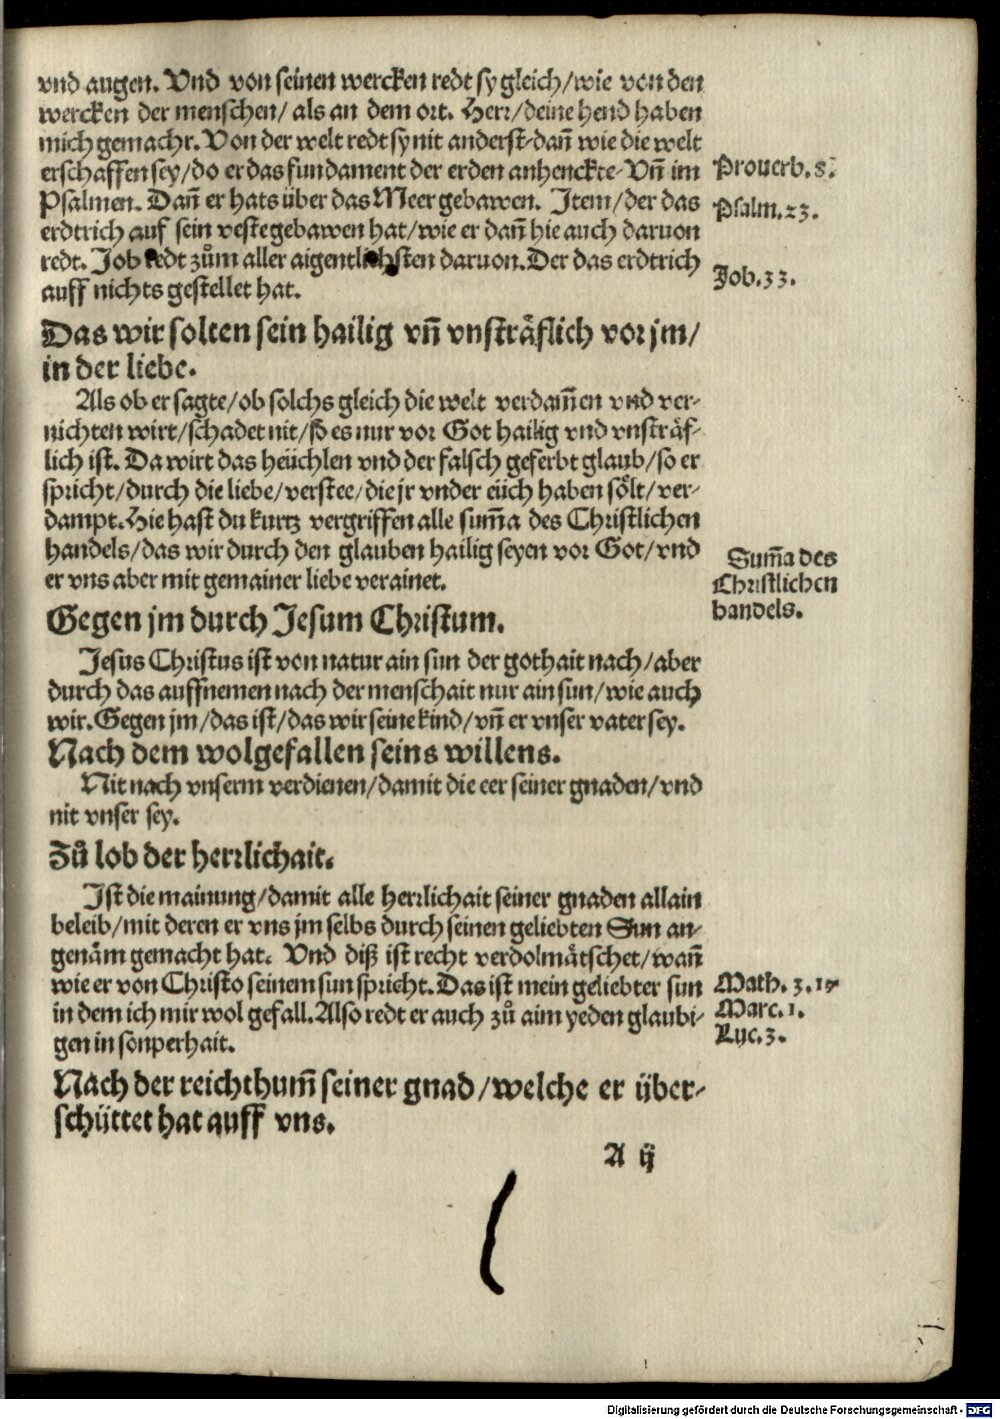 vnd augen. Vnd von seinen wercken redt sy gleich/wie von den
wercken der menschen/ als an dem ort. Herr/deine hend haben
mich gemachr. Von der welt redt sy nit anderst-dañ wie die welt
erschaffen sey/do er das fundament der erden anhenckte. Vñ im
Prouerb. 8.
Psalmen. Dañ er hats über das Meer gebawen. Item/der das
Psalm. 23.
erdtrich auf sein veste gebawen hat/wie er dañ hie auch daruon
redt. Job redt zům aller aigentlichsten daruon. Der das erdtrich
Job. 33.
auff nichts gestellet hat.
Das wir solten sein hailig vñ vnsträflich vor jm/
in der liebe.
Als ob er sagte/ob solchs gleich die welt verdam̃en vnd ver-
nichten wirt/schadet nit/so es nur vor Got hailig vnd vnsträf-
lich ist. Da wirt das heüchlen vnd der falsch geferbt glaub/so er
spricht/durch die liebe/verstee/die jr vnder eüch haben sölt/ver-
dampt. Hie hast du kurtz vergriffen alle sum̃a des Christlichen
handels/das wir durch den glauben hailig seyen vor Got/vnd
er vns aber mit gemainer liebe verainet.
Sum̃a des
Christlichen
handels.
Gegen jm durch Jesum Christum.
Jesus Christus ist von natur ain sun der gothait nach/aber
durch das auffnemen nach der menschait nur ain sun/wie auch
wir. Gegen jm/das ist/das wir seine kind/vñ er vnser vater sey.
Nach dem wolgefallen seins willens.
Nit nach vnserm verdienen/damit die eer seiner gnaden/vnd
nit vnser sey.
Zů lob der herrlichait.
Ist die mainung/damit alle herrlichait seiner gnaden allain
beleib/mit deren er vns jm selbs durch seinen geliebten Sun an-
genäm gemacht hat. Vnd diß ist recht verdolmätschet/wañ
wie er von Christo seinem sun spricht. Das ist mein geliebter sun
in dem ich mir wol gefall. Also redt er auch zů aim yeden glaubi-
gen in sonperhait.
Math. 3. 17
Marc. 1.
Luc. 3.
Nach der reichthum̃ seiner gnad/welche er über-
schüttet hat auff vns.
A ij
Digitalisierung gefördert durch die Deutsche Forschungsgemeinschaft - DFG